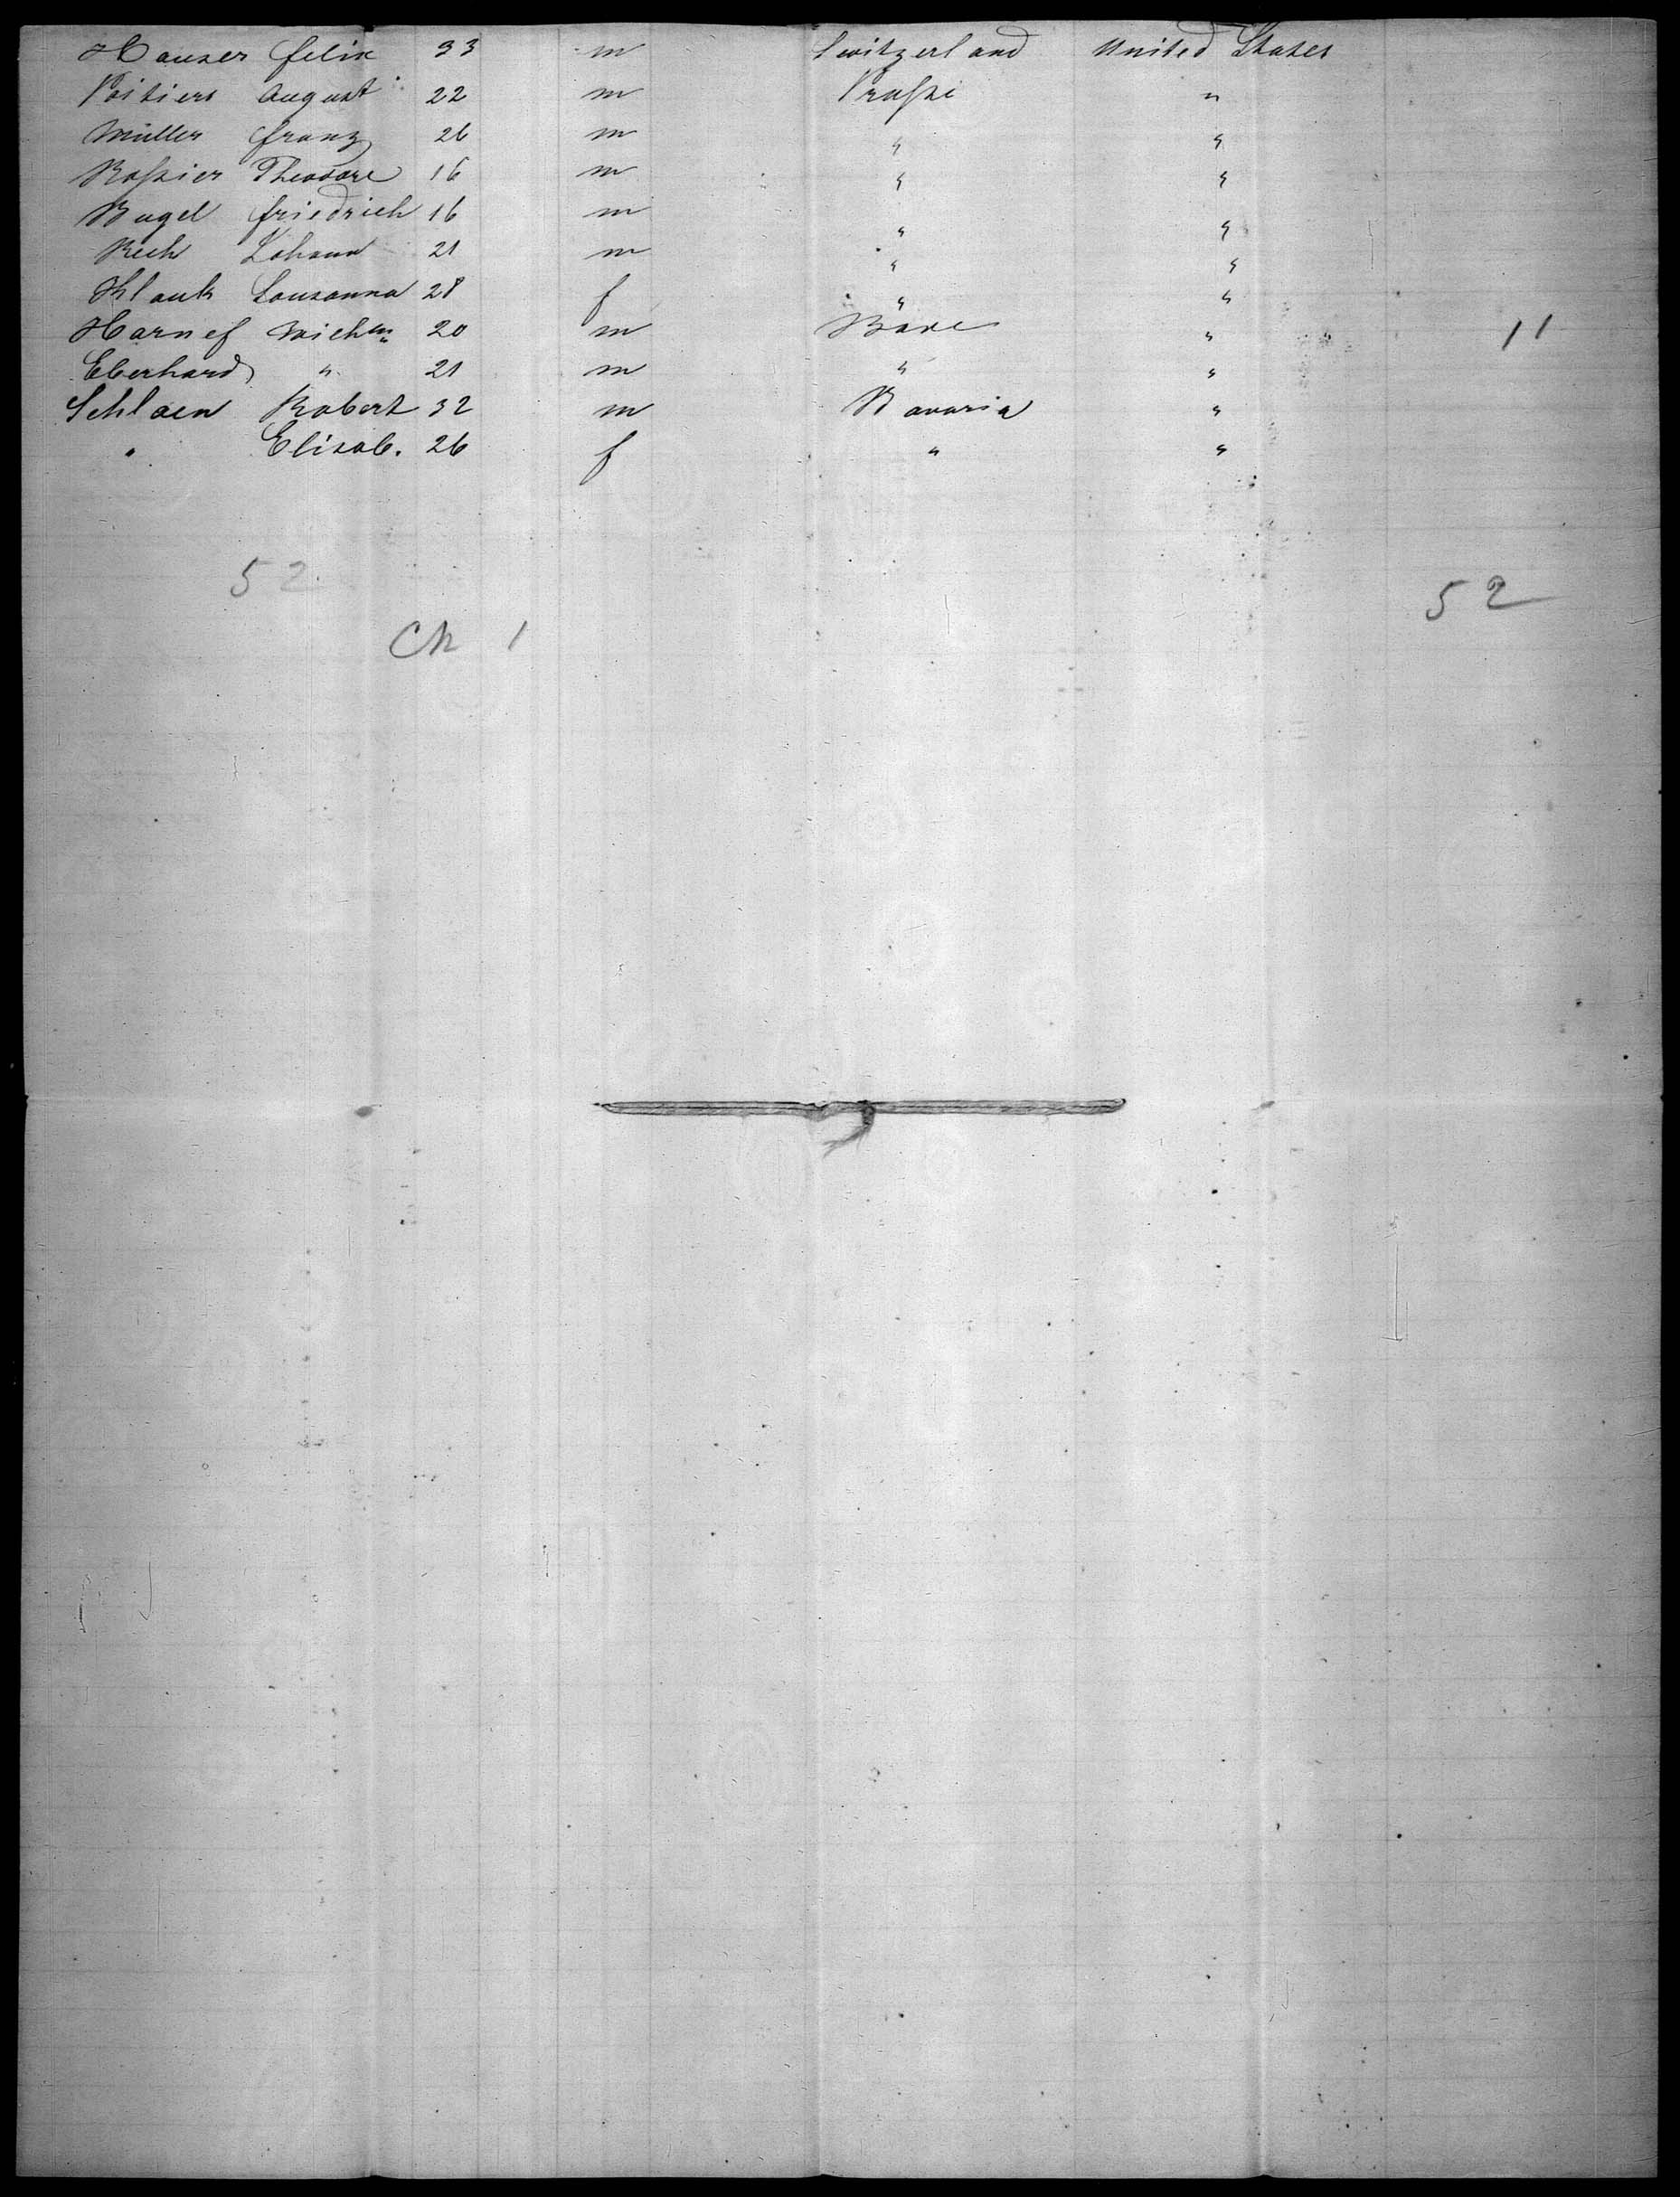 Hauser felix 33 m Switzerland United States
Poitiers August 22 m Prussi "
Müller franz 26 m " "
Rossier Theodore 16 m " "
Bugel friedrich 16 m " "
Rech Johann 21 m " "
Klauk Sousanna 28 f " "
Harnef 20 m Bade " " 11
Eberhard " 21 m " "
Schloen Robert 32 m Bavaria "
" Elisab. 26 f " "
52 52
Ch 1